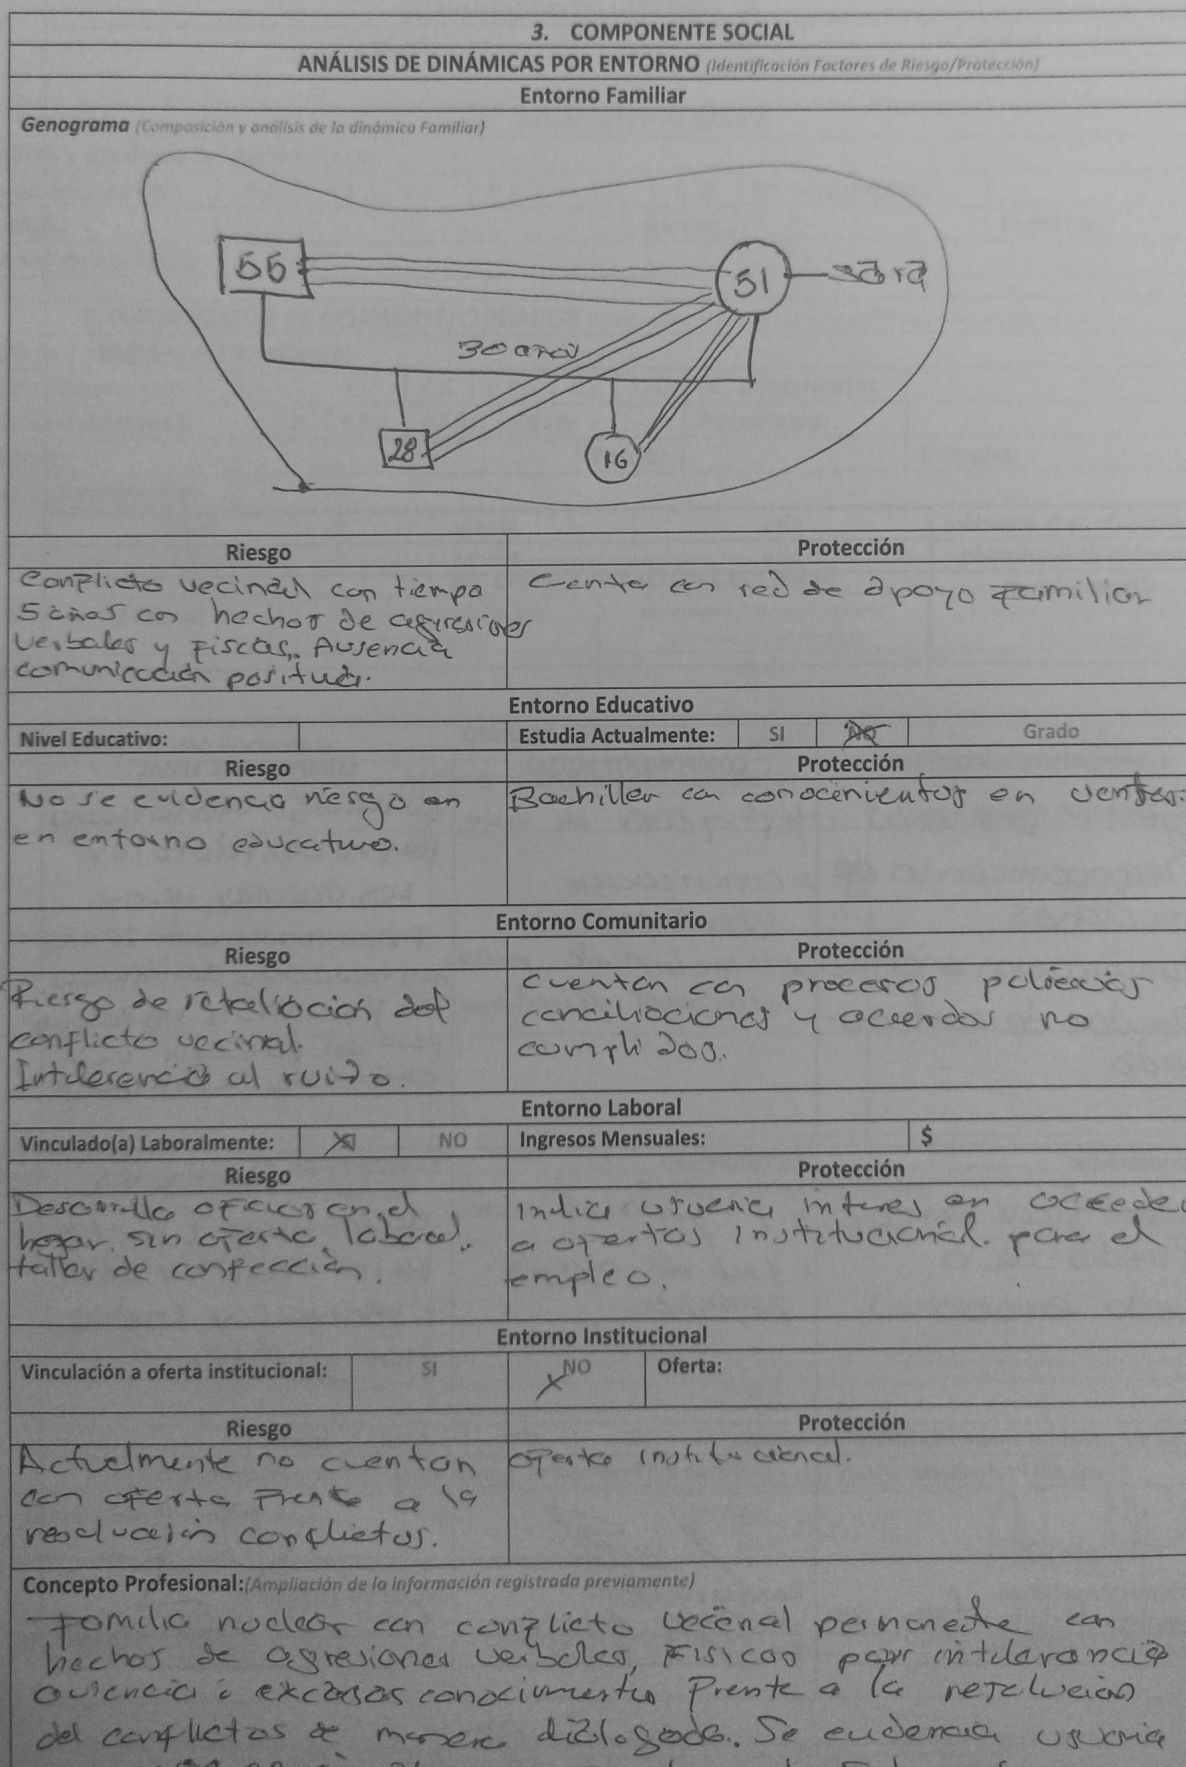 3. COMPONENTE SOCIAL
ANÁLISIS DE DINÁMICAS POR ENTORNO (Identificación Factores de Riesgo/Protección)
Entorno Familiar
Genograma (Composición y análisis de la dinámica Familiar)
55
51
30 años
28
16
Riesgo
Protección
Conflicto vecinal con tiempo
5 años con hechos de agresiones
verbales y Fiscas, Ausencia
comunicación positiva.
Cuenta con red de apoyo Familiar
Entorno Educativo
Nivel Educativo:
Estudia Actualmente: SI NO Grado
Riesgo
Protección
No se evidencia riesgo en
en entorno educativo.
Bachiller con conocimientos en ventas.
Entorno Comunitario
Riesgo
Protección
Riesgo de retaliación del
conflicto vecinal.
Intolerancia al ruido.
cuentan con procesos
conciliaciones y acuerdos no
cumplidos.
Entorno Laboral
Vinculado(a) Laboralmente: SI NO
Ingresos Mensuales: $
Riesgo
Protección
Desarrolla oficios en el
hogar, sin oferta laboral.
taller de confección.
Indica usuaria interes en accede
a ofertas institucional. para el
empleo.
Entorno Institucional
Vinculación a oferta institucional: SI NO Oferta:
Riesgo
Protección
Actualmente no cuentan
con oferta Frente a la
resolución conflictos.
oferta institucional.
Concepto Profesional: (Ampliación de la información registrada previamente)
Familia nuclear con conflicto vecinal permanente con
hechos de agresiones verbales, Fisicas por intolerancia
ausencia o excasos conocimientos Frente a la resolución
del conflictos de manera dialogada. Se evidencia usuaria